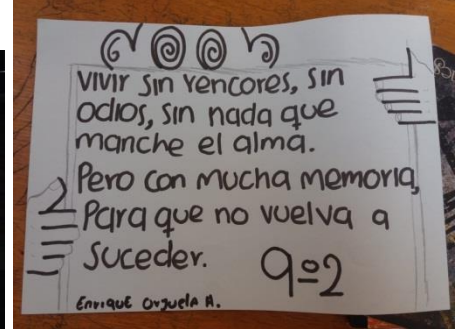 vivir sin rencores, sin
odios, sin nada que
manche el alma.
Pero con mucha memoria,
Para que no vuelva a
suceder.
9º2
Enrique Orjuela A.